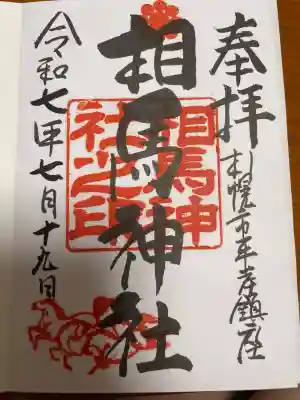 奉拝
札幌市平岸鎮座
相馬神社
相馬神社之印
令和七年七月十九日